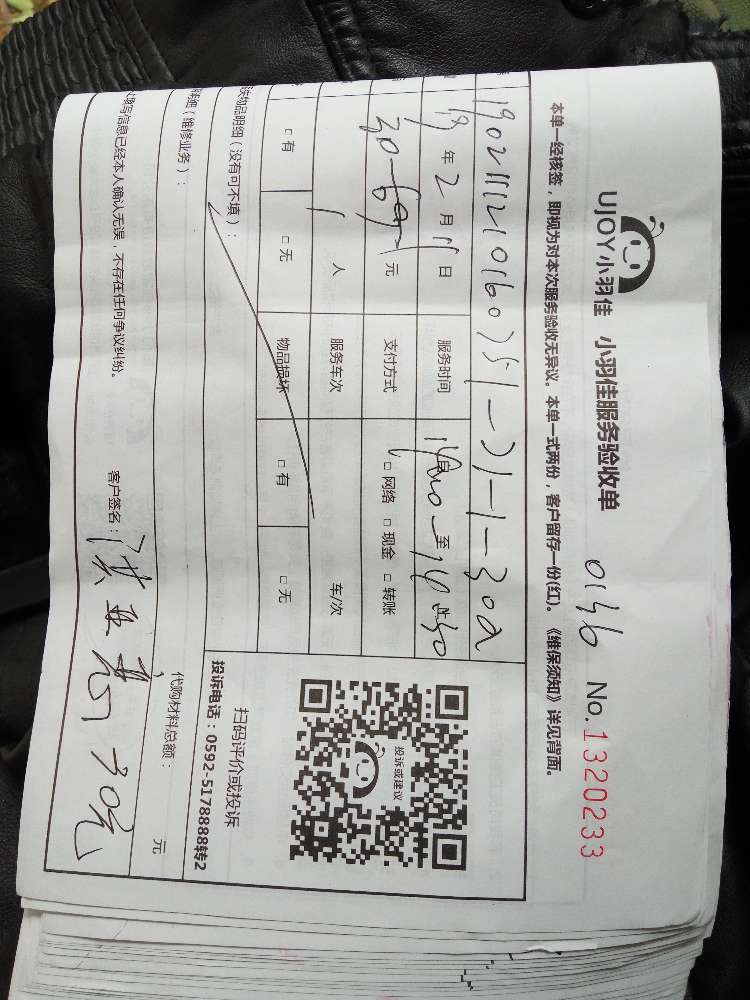 UJOY小羽佳 小羽佳服务验收单 0136 No.1320233
本单一经核签，即视为对本次服务验收无异议。本单一式两份，客户留存一份(红)。《维保须知》详见背面。
19年2月11日 服务时间 至
元 支付方式 □ 网络 □ 现金 □ 转账
1 人 服务车次 车/次
□ 有 □ 无 物品损坏 □ 有 □ 无
物品明细（没有可不填）：
明细（维修业务）：
代购材料总额： 元
填写信息已经本人确认无误，不存在任何争议纠纷。 客户签名： 30元
投诉或建议
扫码评价或投诉
投诉电话：0592-5178888转2